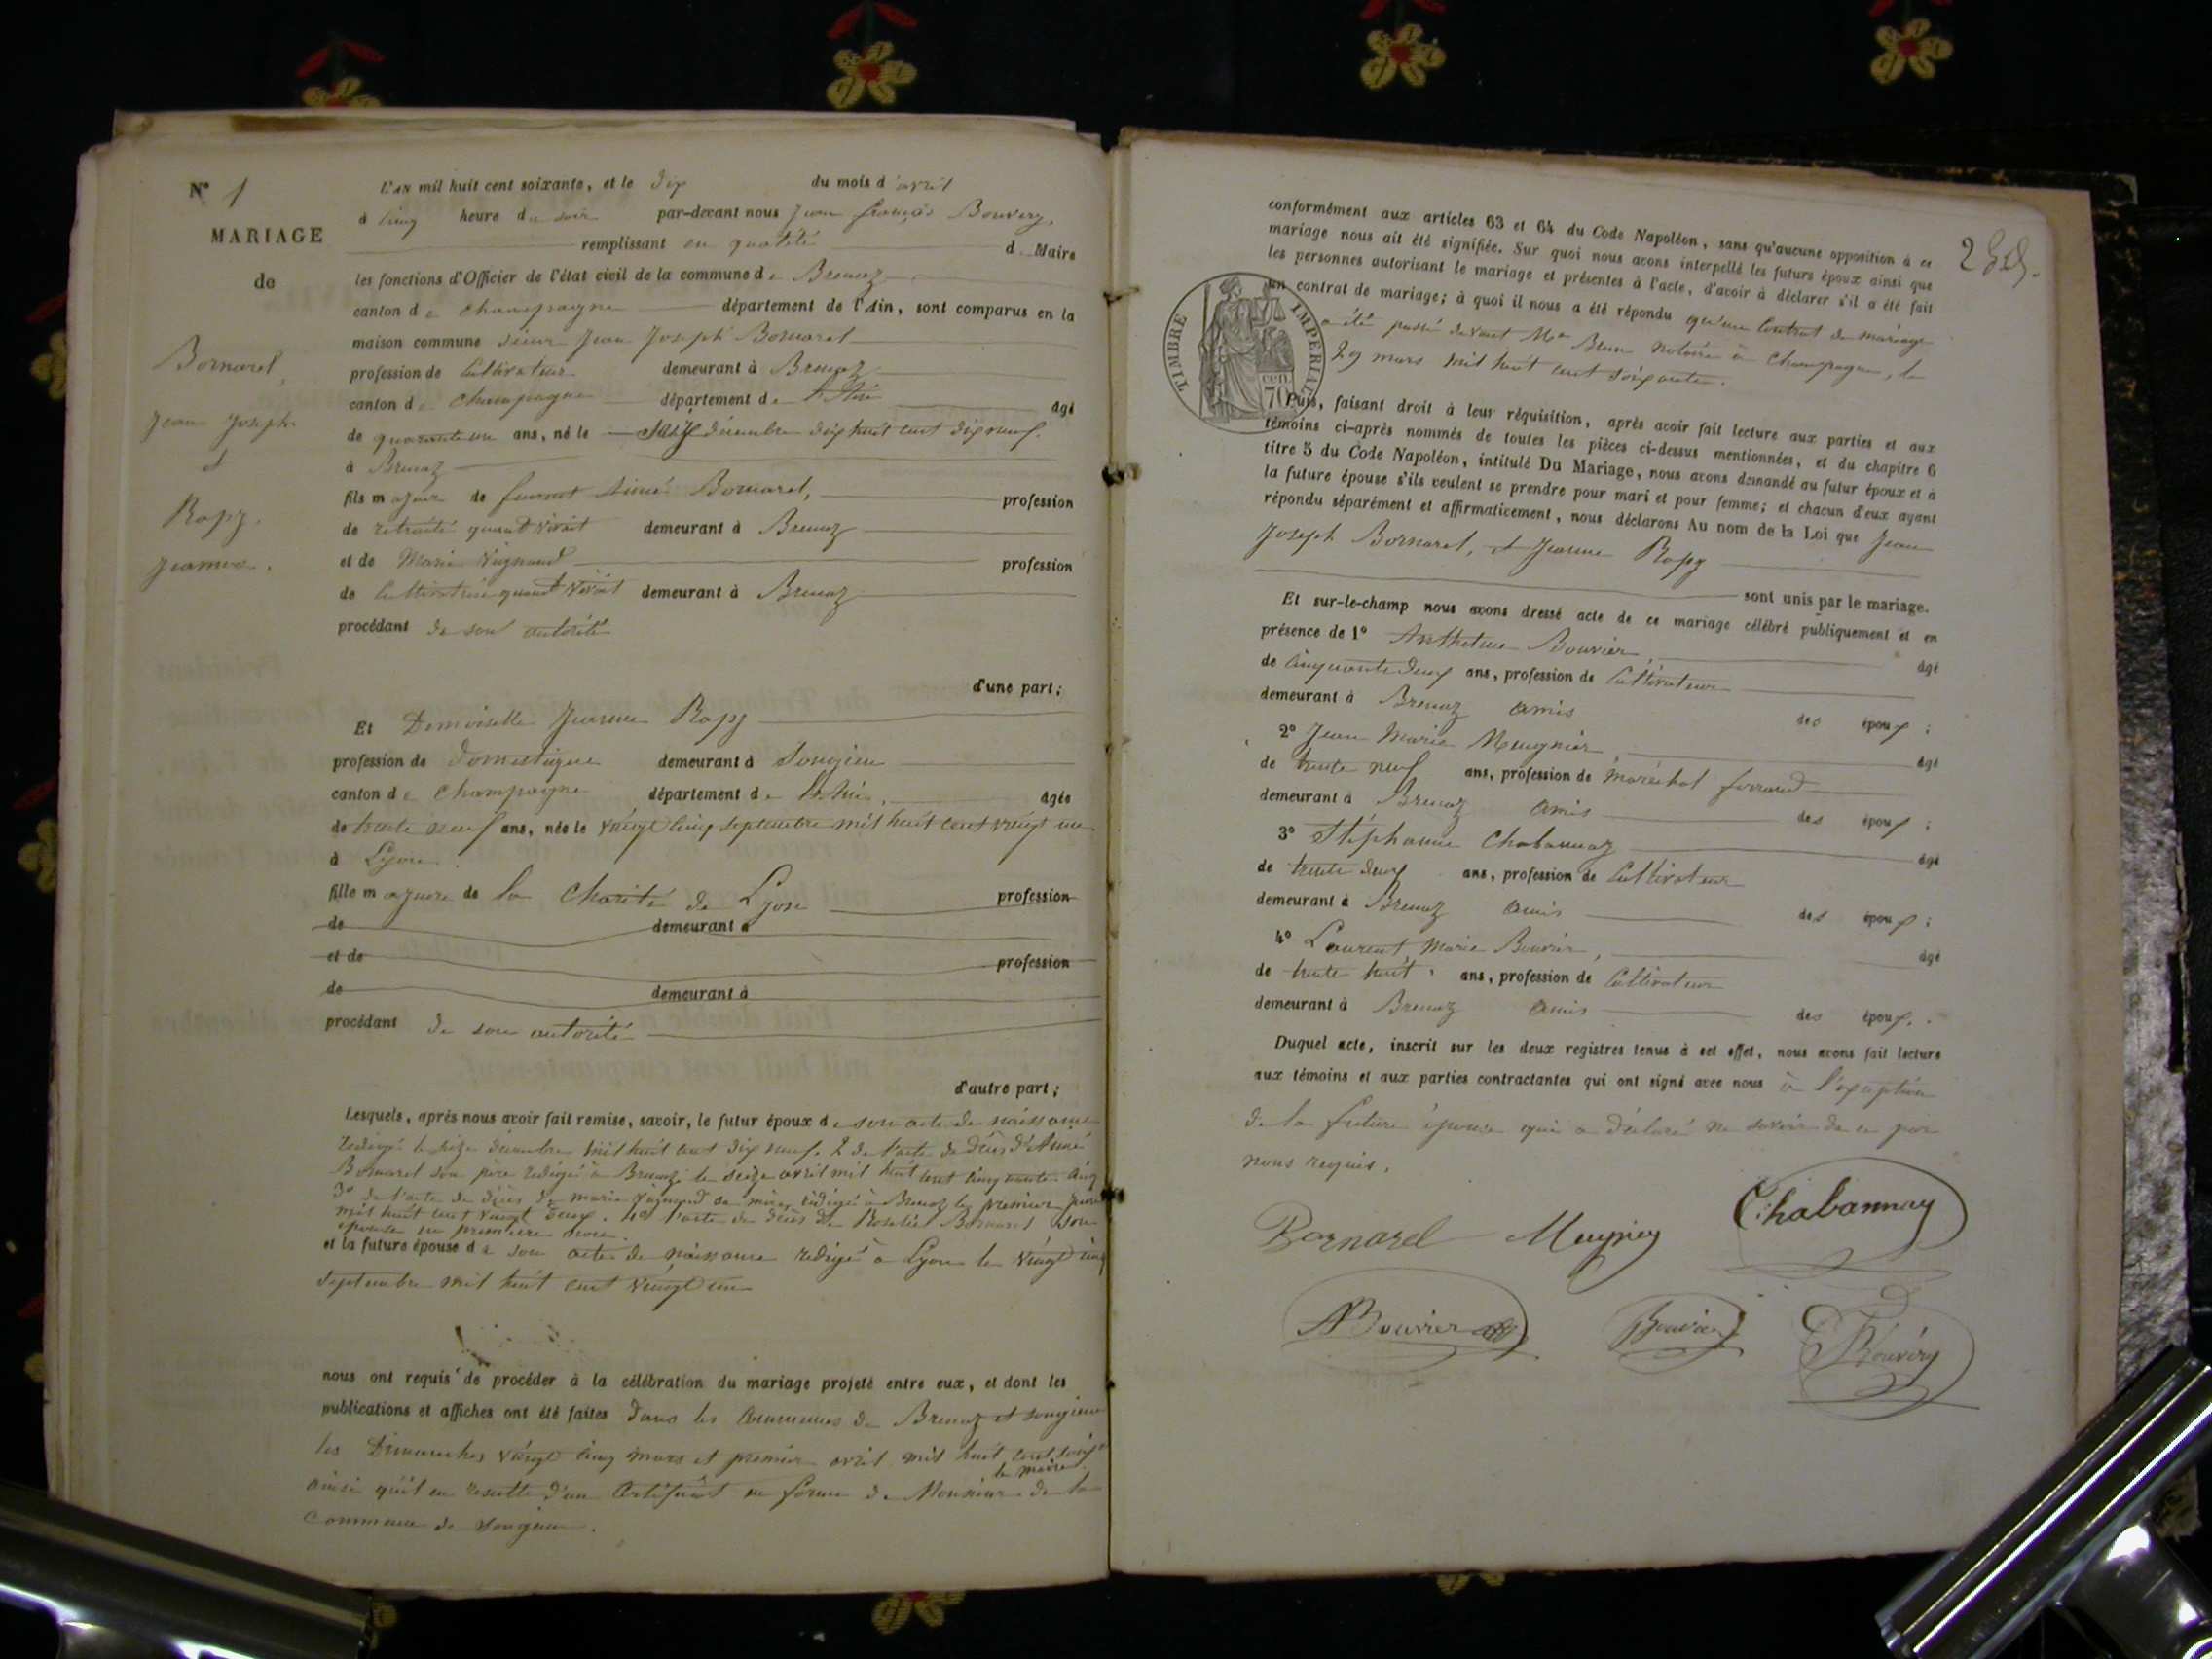 N° 1
MARIAGE
de
Bornarel,
Jean Joseph
et
Rapy.
Jeanne.
L'AN mil huit cent soixante, et le dix du mois d'avril
à cinq heure du soir par-devant nous Jean françois Bouvery,
remplissant en qualité d Maire
les fonctions d'Officier de l'état civil de la commune de Brenaz
canton de Champagne département de l'Ain, sont comparus en la
maison commune sieur Jean Joseph Bornarel
profession de Cultivateur demeurant à Brenaz
canton de Champagne département de l'Ain âgé
de quarante un ans, né le décembre dix huit cent dix neuf.
à Brenaz
fils majeur de Aimé Bornarel, profession
de retraité quand vivait demeurant à Brenaz
et de Marie Vugnand profession
de Cultivatrice quand vivait demeurant à Brenaz
procédant de son autorité
d'une part;
Et Demoiselle Jeanne Rapy
profession de Domestique demeurant à Songieu
canton de Champagne département de l'Ain, âgée
de trente neuf ans, née le vingt cinq septembre mil huit cent vingt un
à Lyon.
fille majeure de la Charité de Lyon profession
de demeurant à
et de profession
de demeurant à
procédant de son autorité
d'autre part;
Lesquels, après nous avoir fait remise, savoir, le futur époux de son acte de naissance
redigé le seize décembre mil huit cent dix neuf. 2 de l'acte de décès d'Aimé
Bornarel son père redigé à Brenaz le seize avril mil huit cent cinquante cinq
3° de l'acte de décès de marie Vugnand sa mère, redigé à Brenaz le premier
mil huit cent vingt deux. 4° l'acte de décès de Bornarel son
épouse en première noce.
et la future épouse de son acte de naissance redigé à Lyon le vingt cinq
septembre mil huit cent vingt un
nous ont requis de procéder à la célébration du mariage projeté entre eux, et dont les
publications et affiches ont été faites dans les communes de Brenaz et songieu
les Dimanches vingt cinq mars et premier avril mil huit cent soixte
ainsi qu'il en resulte d'un Certificat en forme de Monsieur le maire de la
Commune de Songieu.
conformément aux articles 63 et 64 du Code Napoléon, sans qu'aucune opposition à ce
mariage nous ait été signifiée. Sur quoi nous avons interpellé les futurs époux ainsi que
les personnes autorisant le mariage et présentes à l'acte, d'avoir à déclarer s'il a été fait
un contrat de mariage; à quoi il nous a été répondu qu'un Contrat de mariage
a été passé devant Me Brun Notaire à Champagne, le
29 mars mil huit cent soixante.
TIMBRE IMPERIAL
70 cen.
Puis, faisant droit à leur réquisition, après avoir fait lecture aux parties et aux
témoins ci-après nommés de toutes les pièces ci-dessus mentionnées, et du chapitre 6
titre 5 du Code Napoléon, intitulé Du Mariage, nous avons demandé au futur époux et à
la future épouse s'ils veulent se prendre pour mari et pour femme; et chacun d'eux ayant
répondu séparément et affirmativement, nous déclarons Au nom de la Loi que Jean
Joseph Bornarel, et Jeanne Rapy
sont unis par le mariage.
Et sur-le-champ nous avons dressé acte de ce mariage célébré publiquement et en
présence de 1° Anthelme Bouvier, âgé
de cinquante deux ans, profession de Cultivateur
demeurant à Brenaz amis des époux;
2° Jean Marie Meugnier, âgé
de trente neuf ans, profession de maréchal ferrand
demeurant à Brenaz amis des époux;
3° Stéphanne Chabannaz âgé
de trente deux ans, profession de Cultivateur
demeurant à Brenaz amis des époux;
4° Laurent Marie Bouvier, âgé
de trente huit ans, profession de Cultivateur
demeurant à Brenaz amis des époux.
Duquel acte, inscrit sur les deux registres tenus à cet effet, nous avons fait lecture
aux témoins et aux parties contractantes qui ont signé avec nous à l'exeption
de la future épouse qui a déclaré ne savoir de ce par
nous requis.
Bornarel Chabannay
ABouvier Bouvier Bouvery